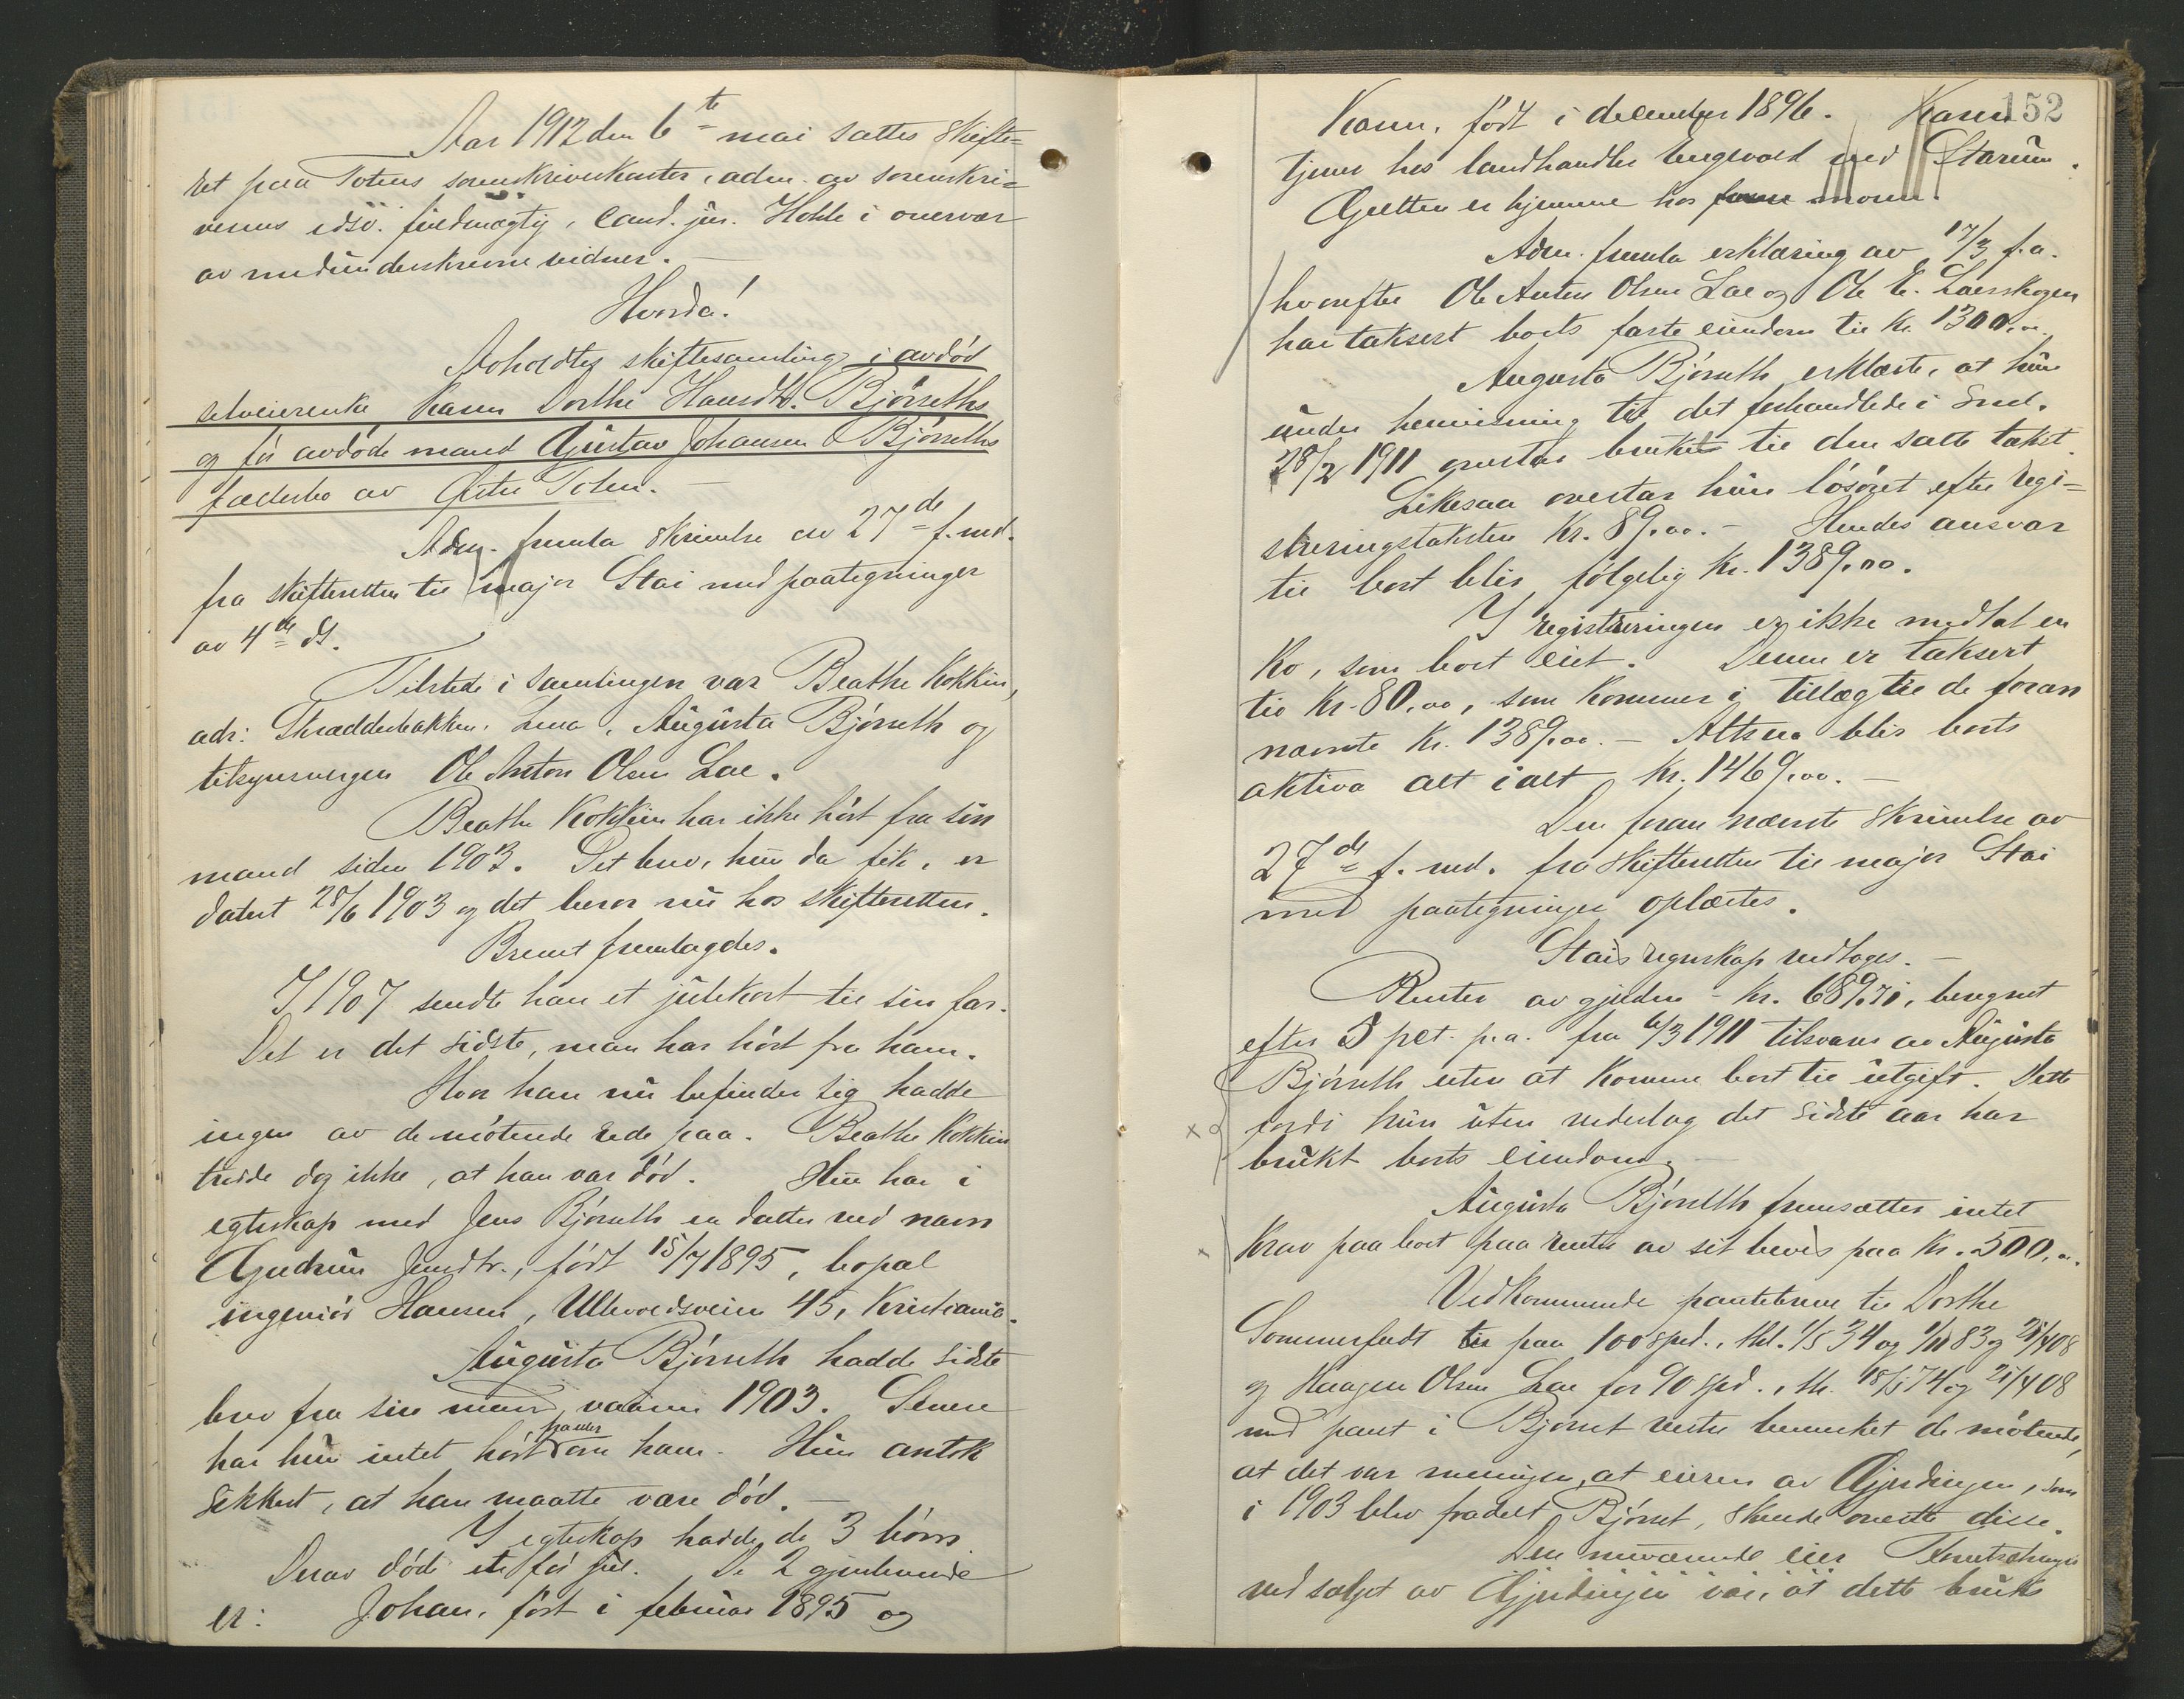 Aar 1912 den 6te mai sattes skifte=
ret paa Totens sorenskriverkontor, adm. av sorenskri=
verens edsv. fuldmægtig, cand. jur. Hohle i overvær
av medunderskrevne vidner. –
Hvorda!
Avholdtes skiftesamling i avdød
selveierenke Karen Dorthe Hansdtr. Bjørseths
og før avdøde mand Gustav Johansen Bjørseths
fællesbo av Østre Toten. –
Adm. fremla skrivelse av 27de f. md.
fra skifteretten til major Stai med paategninger
av 4de ds.
Tilstede i samlingen var Beathe Kokkin,
adr: Skrædderbakken, Lena, Augusta Bjørseth og
tilsynsvergen Ole Anton Olsen Loe.
Beathe Kokkin har ikke hørt fra sin
mand siden 1903. Det brev, hun da fik, er
datert 28/6 1903 og det beror nu hos skifteretten.
Brevet fremlagdes.
I 1907 sendte han et julekort til sin far.
Det er det sidste, man har hørt fra ham.
Hvor han nu befinder sig hadde
ingen av de møtende rede paa. Beathe Kokkin
trodde dog ikke, at han var død. Hun har i
egteskap med Jens Bjørseth en datter ved navn
Gudrun Jensdtr., født 15/7 1895, bopæl
ingeniør Hansen, Ullevoldsveien 45, Kristiania.
Augusta Bjørseth hadde sidste
brev fra sin mand, vaaren 1903. Senere
har hun intet hørt om ham. Hun antok
sikkert, at han maatte være død. –
I egteskap hadde de 3 børn
Derav døde et før jul. De 2 gjenlevende
er: Johan, født i februar 1895 og
152
Karen, født i december 1896. Karen
tjener hos landhandler Engevold ved Starum.
Gutten er hjemme hos moren.
Adm. fremla erklæring av 17/3 f. a.
hvorefter Ole Anton Olsen Loe og Ole E. Loeskogen
har taksert boets faste eiendom til kr. 1300.00.
Augusta Bjørseth erklærte, at hun
under henvisning til det forhandlede i sml.
28/2 1911 overtar bruket til den satte takst.
Likesaa overtar hun løsøret efter regi=
streringstaksten kr. 89.00. – Hendes ansvar
til boet blir følgelig kr. 1389.00.
I registreringen er ikke medtat en
ko, som boet eiet. Denne er taksert
til kr. 80.00, som kommer i tillæg til de foran
nævnte kr. 1389.00. – Altsaa blir boets
aktiva alt i alt kr. 1469.00. –
Den foran nævnte skrivelse av
27de f. md. fra skifteretten til major Stai
med paategninger oplæstes.
Stais regnskap vedtoges. –
Renter av gjælden – kr. 689.71, beregnet
efter 5 pct. p. a. fra 6/3 1911 tilsvares av Augusta
Bjørseth uten at komme boet til utgift. Dette
fordi hun uten vederlag det sidste aar har
brukt boets eiendom. –
Augusta Bjørseth fremsætter intet
krav paa boet paa renter av sit bevis paa kr. 500.00.
Vedkommende pantebrevene til Dorthe
Sommerfeldt paa 100 spd., thl. 1/5 34 og 1/11 83 og 25/4 08
og Haagen Olsen Loe for 90 spd., thl. 18/5 74 og 25/4 08
med pant i Bjørset vestre bemerket de møtende,
at det var meningen, at eieren av Gjerdingen, som
i 1903 blev fradelt Bjørset, skulde overta disse.
Den nuværende eier
ved salget av Gjerdingen var, at dette bruks